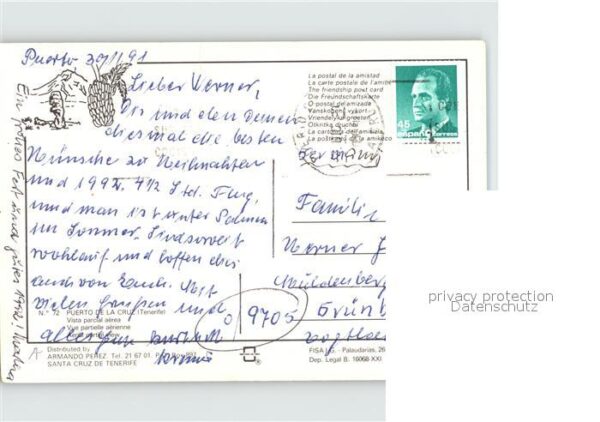 Puerto, 30/11/91
Lieber Werner,
Dir und den Deinen
diesmal die besten
Wünsche zu Weihnachten
und 1992. 4 1/2 Std. Flug,
und man ist unter Palmen
im Sommer. Sind soweit
wohlauf und hoffen das
auch von Euch. Mit
vielen Grüßen und
alles Gute
Ein frohes Fest und
La postal de la amistad
La carte postale de l'amitié
The friendship post card
Die Freundschaftskarte
O postal de amizade
Vanskapens vykort
Vriendelijke groeten
Otkritka druchbi
La cartolina dell'amicizia
45
españa
correos
Germany
Familie
Werner
Grünb
Vogtla
9705
N.° 72 PUERTO DE LA CRUZ (Tenerife)
Vista parcial aérea
Vue partielle aérienne
Distributed by
ARMANDO PEREZ. Tel. 21 67 01
SANTA CRUZ DE TENERIFE
FISA I.G. - Palaudarias, 26
Dep. Legal B. 16068-XXI
privacy protection
Datenschutz